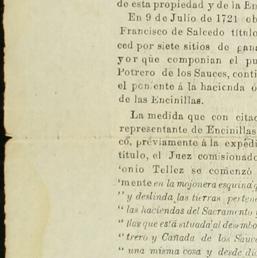 de esta propiedad y de la En
En 9 de Julio de 1721 ob
Francisco de Salcedo título
ced por siete sitios de gana
yor que componian el pu
Potrero de los Sauces, conti
el poniente á la hacienda ó
de las Encinillas.
La medida que con citac
representante de Encinillas
có, préviamente á la expedi
título, el Juez comisionado
onio Tellez se comenzó
"mente en la mojonera esquina q
" y deslinda las tierras pertene
" las haciendas del Sacramento y
" llas que está situada al desembo
" trero y Cañada de los Sauce
" una misma cosa y desde di